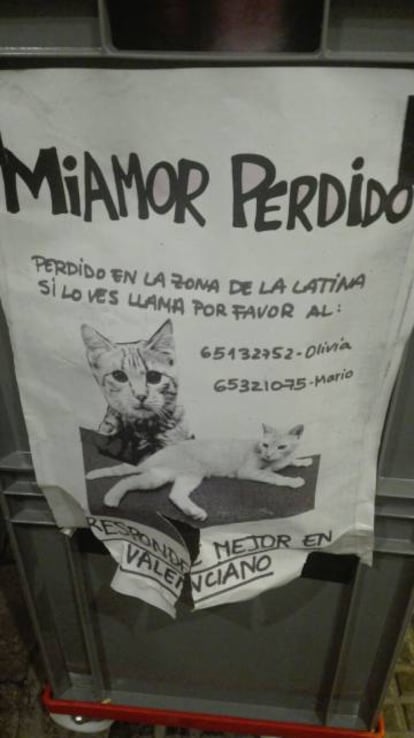 MiAMOR PERDIDO
PERDIDO EN LA ZONA DE LA LATINA
SI LO VES LLAMA POR FAVOR AL:
65132752-Olivia
65321075-Mario
RESPONDE MEJOR EN
VALENCIANO